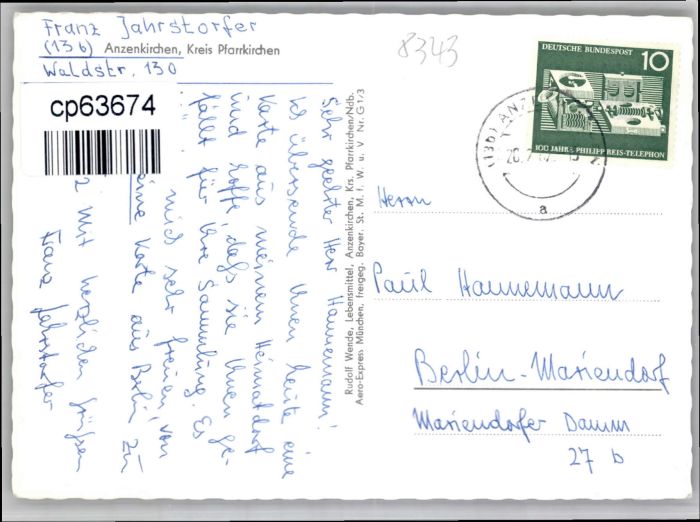 Franz Jahrstorfer
(13b) Anzenkirchen, Kreis Pfarrkirchen
Waldstr. 130
8343
cp63674
DEUTSCHE BUNDESPOST 10
100 JAHRE PHILIPP REIS-TELEPHON
(13b) ANZ
a
Sehr geehrter Herr Hannemann!
Ich übersende Ihnen heute eine
Karte aus meinem Heimatdorf
und hoffe, daß sie Ihnen ge-
fällt für Ihre Sammlung. Es
mich sehr freuen, von
eine Karte aus Berlin zu
Mit herzlichen Grüßen
Franz Jahrstorfer
Rudolf Wende, Lebensmittel, Anzenkirchen, Krs. Pfarrkirchen/Ndb.
Aero-Express München, freigeg. Bayer. St. M. f. W. u. V. Nr. G 1/3
Herrn
Paul Hannemann
Berlin-Mariendorf
Mariendorfer Damm
27 b